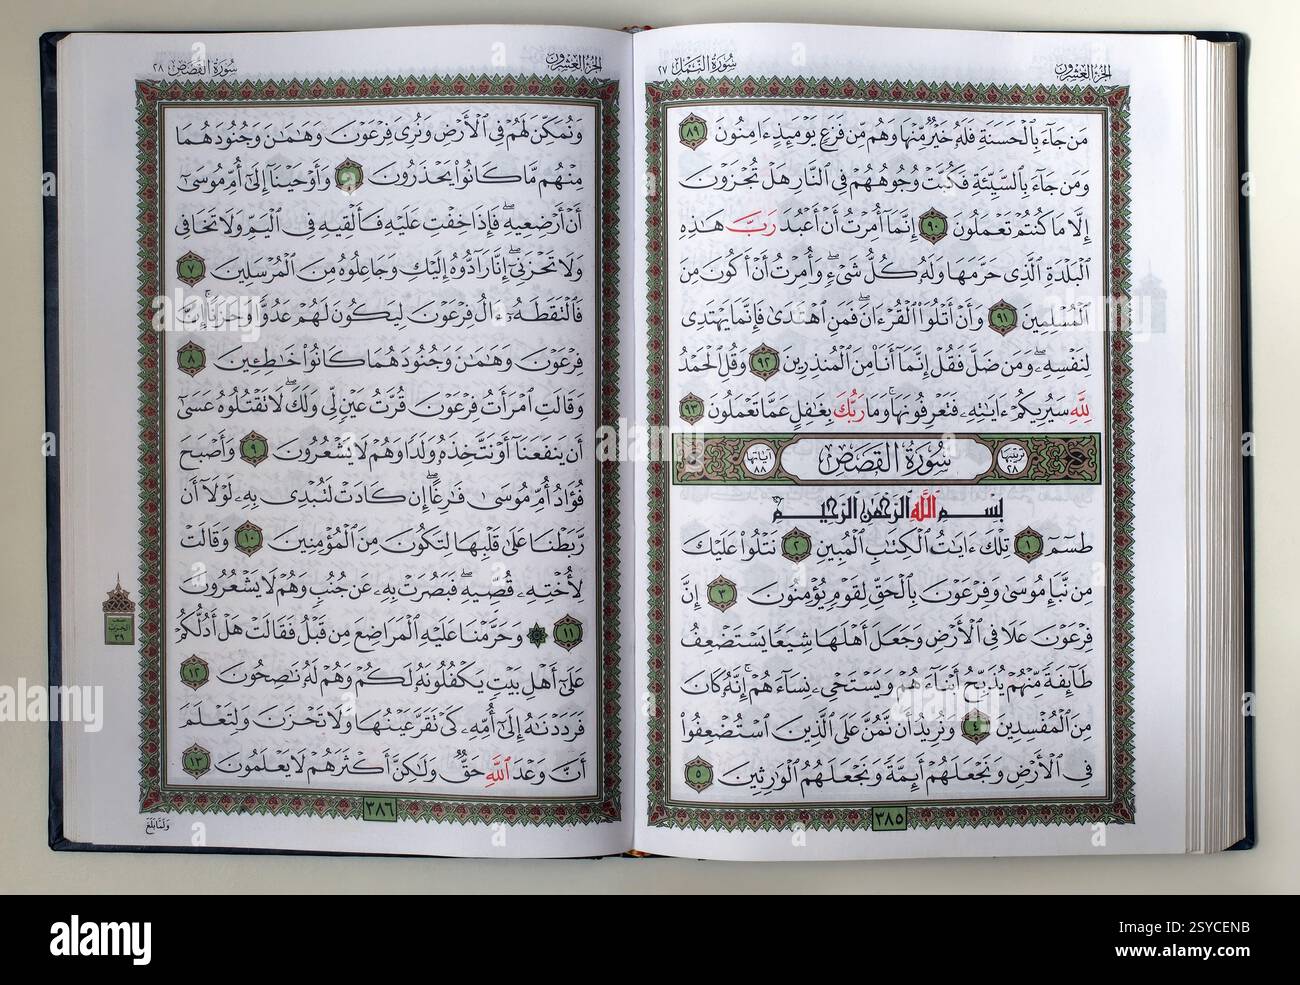 الجزء العشرون سورة النمل ٢٧
مَن جَآءَ بِٱلْحَسَنَةِ فَلَهُۥ خَيْرٌ مِّنْهَا وَهُم مِّن فَزَعٍ يَوْمَئِذٍ ءَامِنُونَ ٨٩
وَمَن جَآءَ بِٱلسَّيِّئَةِ فَكُبَّتْ وُجُوهُهُمْ فِى ٱلنَّارِ هَلْ تُجْزَوْنَ
إِلَّا مَا كُنتُمْ تَعْمَلُونَ ٩٠ إِنَّمَآ أُمِرْتُ أَنْ أَعْبُدَ رَبَّ هَٰذِهِ
ٱلْبَلْدَةِ ٱلَّذِى حَرَّمَهَا وَلَهُۥ كُلُّ شَىْءٍ ۖ وَأُمِرْتُ أَنْ أَكُونَ مِنَ
ٱلْمُسْلِمِينَ ٩١ وَأَنْ أَتْلُوَا۟ ٱلْقُرْءَانَ ۖ فَمَنِ ٱهْتَدَىٰ فَإِنَّمَا يَهْتَدِى
لِنَفْسِهِۦ ۖ وَمَن ضَلَّ فَقُلْ إِنَّمَآ أَنَا۠ مِنَ ٱلْمُنذِرِينَ ٩٢ وَقُلِ ٱلْحَمْدُ
لِلَّهِ سَيُرِيكُمْ ءَايَٰتِهِۦ فَتَعْرِفُونَهَا ۚ وَمَا رَبُّكَ بِغَٰفِلٍ عَمَّا تَعْمَلُونَ ٩٣
ترتيبها ٢٨ سورة القصص آياتها ٨٨
بسم الله الرحمن الرحيم
طسٓمٓ ١ تِلْكَ ءَايَٰتُ ٱلْكِتَٰبِ ٱلْمُبِينِ ٢ نَتْلُوا۟ عَلَيْكَ
مِن نَّبَإِ مُوسَىٰ وَفِرْعَوْنَ بِٱلْحَقِّ لِقَوْمٍ يُؤْمِنُونَ ٣ إِنَّ
فِرْعَوْنَ عَلَا فِى ٱلْأَرْضِ وَجَعَلَ أَهْلَهَا شِيَعًا يَسْتَضْعِفُ
طَآئِفَةً مِّنْهُمْ يُذَبِّحُ أَبْنَآءَهُمْ وَيَسْتَحْىِۦ نِسَآءَهُمْ ۚ إِنَّهُۥ كَانَ
مِنَ ٱلْمُفْسِدِينَ ٤ وَنُرِيدُ أَن نَّمُنَّ عَلَى ٱلَّذِينَ ٱسْتُضْعِفُوا۟
فِى ٱلْأَرْضِ وَنَجْعَلَهُمْ أَئِمَّةً وَنَجْعَلَهُمُ ٱلْوَٰرِثِينَ ٥
٣٨٥
الجزء العشرون سورة القصص ٢٨
وَنُمَكِّنَ لَهُمْ فِى ٱلْأَرْضِ وَنُرِىَ فِرْعَوْنَ وَهَٰمَٰنَ وَجُنُودَهُمَا
مِنْهُم مَّا كَانُوا۟ يَحْذَرُونَ ٦ وَأَوْحَيْنَآ إِلَىٰٓ أُمِّ مُوسَىٰٓ
أَنْ أَرْضِعِيهِ ۖ فَإِذَا خِفْتِ عَلَيْهِ فَأَلْقِيهِ فِى ٱلْيَمِّ وَلَا تَخَافِى
وَلَا تَحْزَنِىٓ ۖ إِنَّا رَآدُّوهُ إِلَيْكِ وَجَاعِلُوهُ مِنَ ٱلْمُرْسَلِينَ ٧
فَٱلْتَقَطَهُۥٓ ءَالُ فِرْعَوْنَ لِيَكُونَ لَهُمْ عَدُوًّا وَحَزَنًا ۗ إِنَّ
فِرْعَوْنَ وَهَٰمَٰنَ وَجُنُودَهُمَا كَانُوا۟ خَٰطِـِٔينَ ٨
وَقَالَتِ ٱمْرَأَتُ فِرْعَوْنَ قُرَّتُ عَيْنٍ لِّى وَلَكَ ۖ لَا تَقْتُلُوهُ عَسَىٰٓ
أَن يَنفَعَنَآ أَوْ نَتَّخِذَهُۥ وَلَدًا وَهُمْ لَا يَشْعُرُونَ ٩ وَأَصْبَحَ
فُؤَادُ أُمِّ مُوسَىٰ فَٰرِغًا ۖ إِن كَادَتْ لَتُبْدِى بِهِۦ لَوْلَآ أَن
رَّبَطْنَا عَلَىٰ قَلْبِهَا لِتَكُونَ مِنَ ٱلْمُؤْمِنِينَ ١٠ وَقَالَتْ
لِأُخْتِهِۦ قُصِّيهِ ۖ فَبَصُرَتْ بِهِۦ عَن جُنُبٍ وَهُمْ لَا يَشْعُرُونَ
١١ ۞ وَحَرَّمْنَا عَلَيْهِ ٱلْمَرَاضِعَ مِن قَبْلُ فَقَالَتْ هَلْ أَدُلُّكُمْ
عَلَىٰٓ أَهْلِ بَيْتٍ يَكْفُلُونَهُۥ لَكُمْ وَهُمْ لَهُۥ نَٰصِحُونَ ١٢
فَرَدَدْنَٰهُ إِلَىٰٓ أُمِّهِۦ كَىْ تَقَرَّ عَيْنُهَا وَلَا تَحْزَنَ وَلِتَعْلَمَ
أَنَّ وَعْدَ ٱللَّهِ حَقٌّ وَلَٰكِنَّ أَكْثَرَهُمْ لَا يَعْلَمُونَ ١٣
٣٨٦
وَلَمَّا بَلَغَ
نصف الحزب ٣٩
alamy
Image ID: 2SYCENB
www.alamy.com